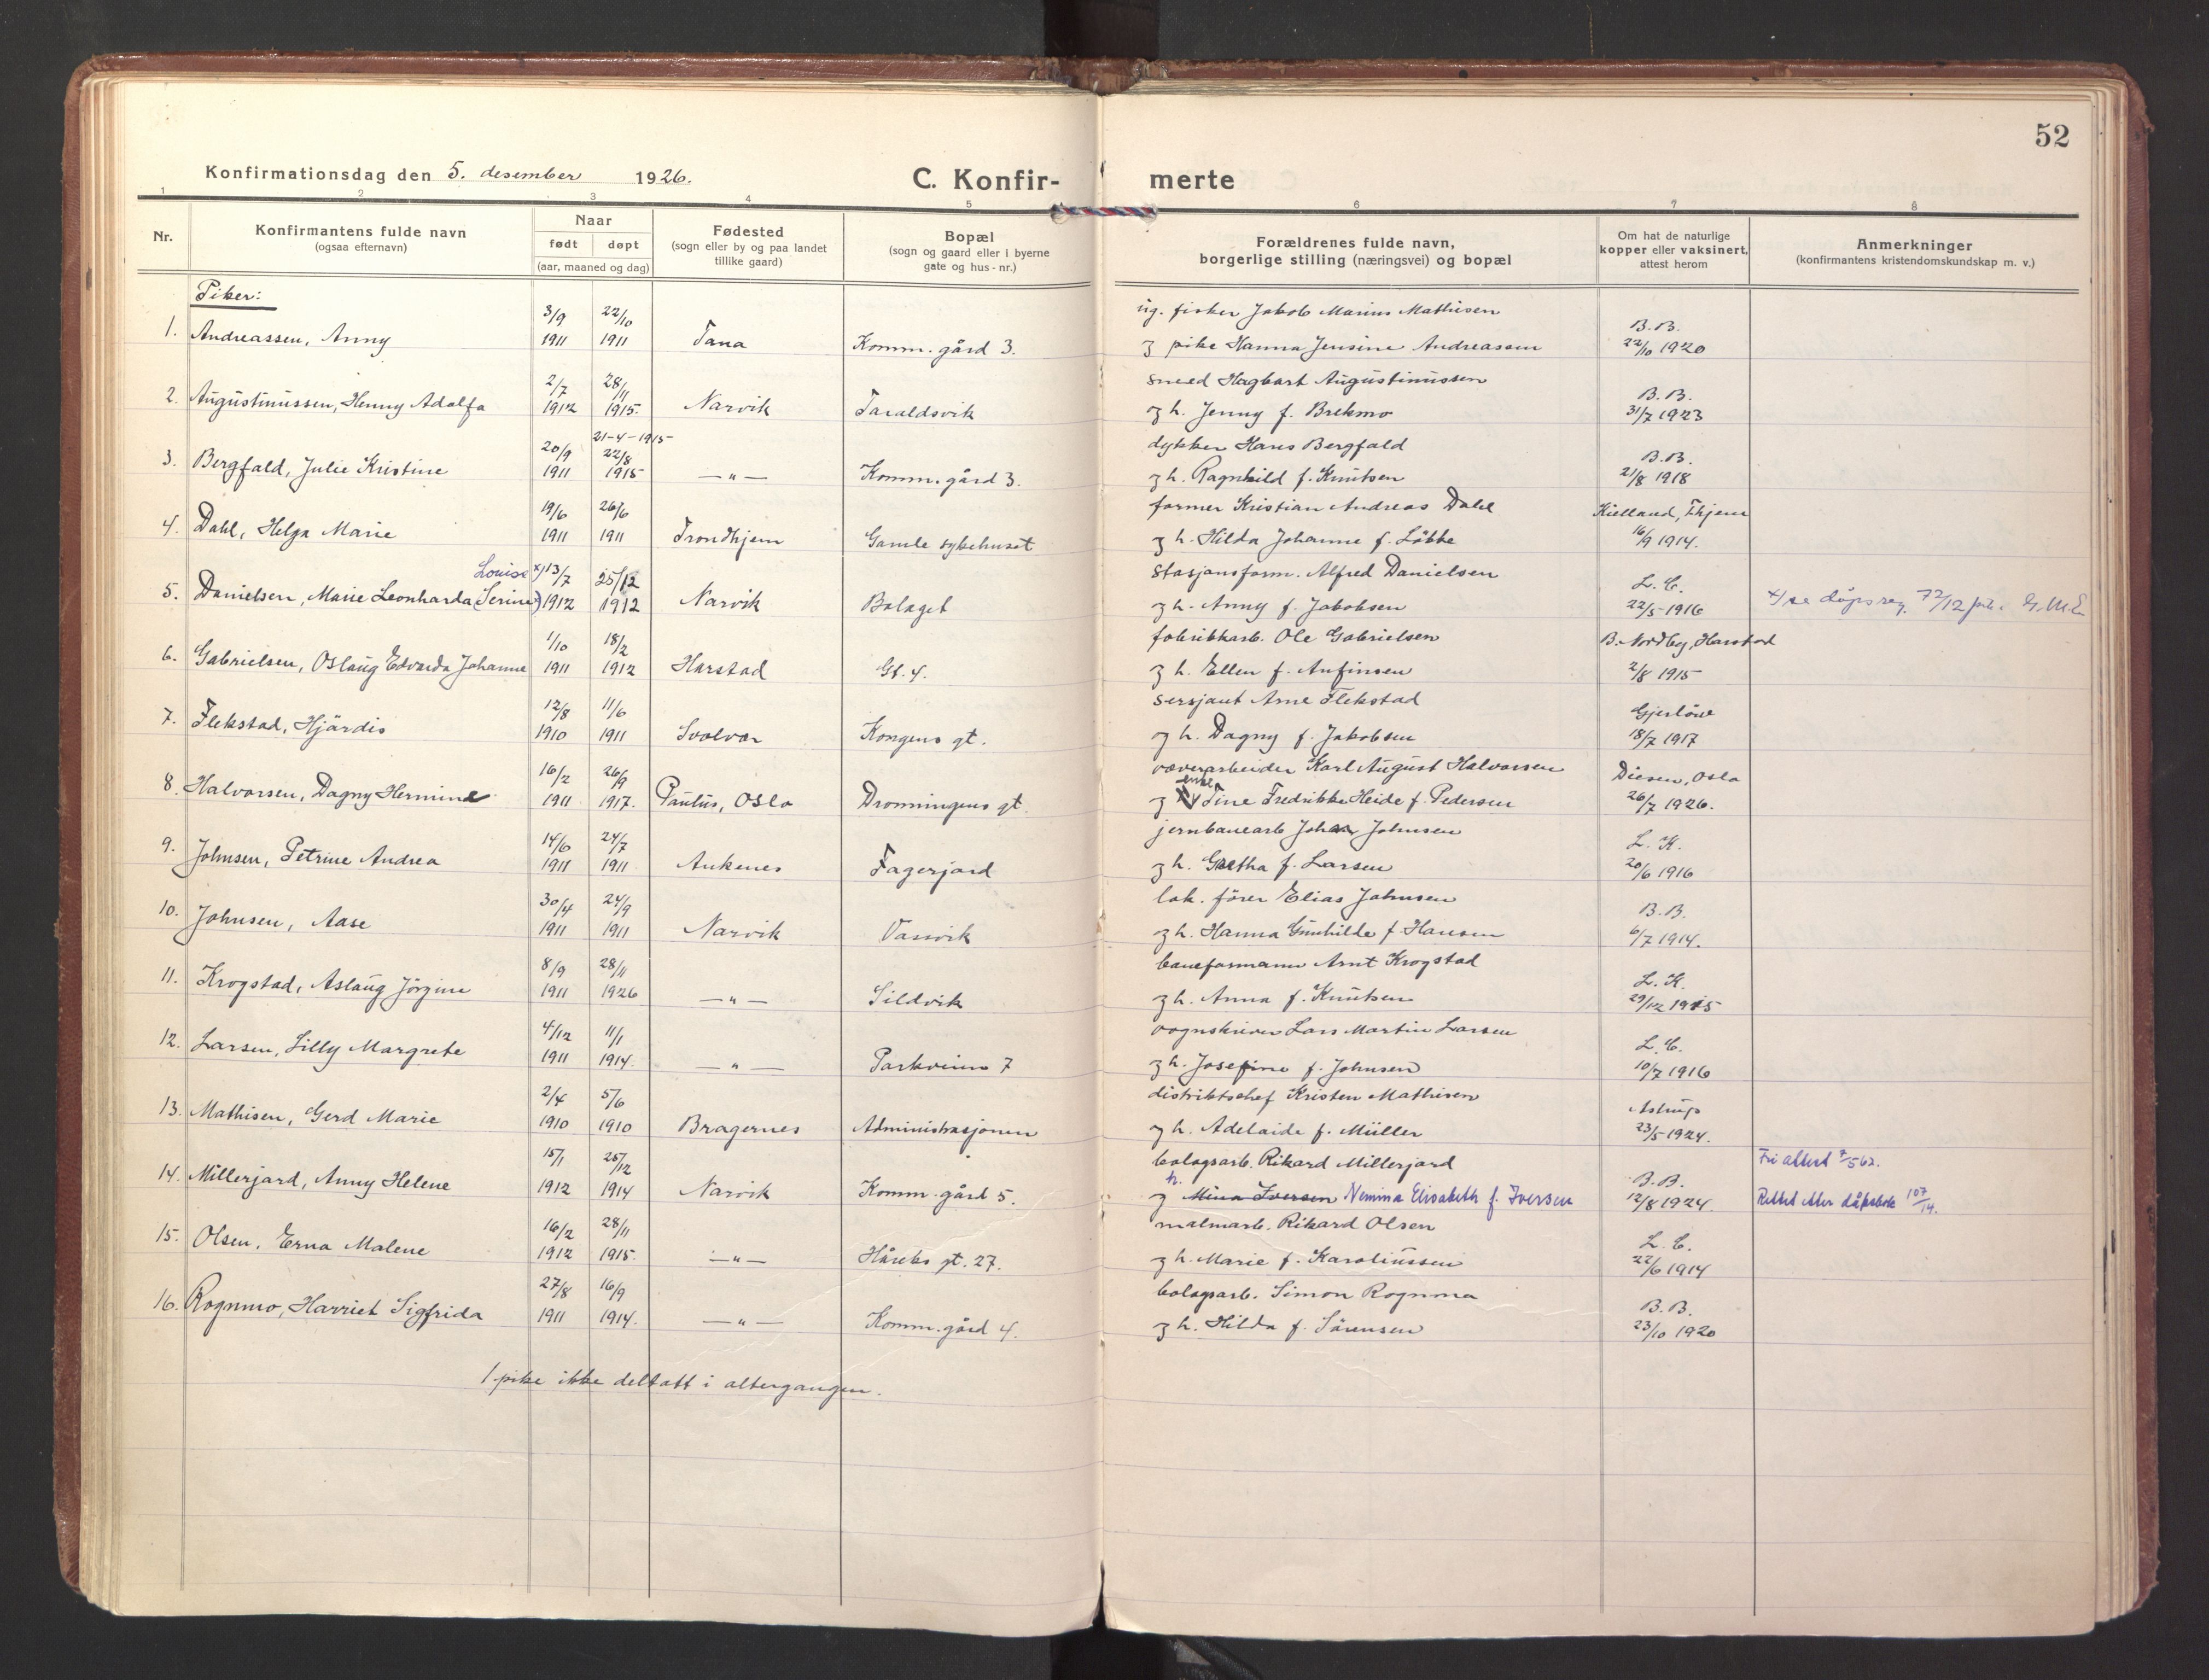 52
Konfirmationsdag den 5. desember 1926.
C. Konfir- merte
1 2 3 4 5 6 7 8
Nr.
Konfirmantens fulde navn
(ogsaa efternavn)
Naar
født døpt
(aar, maaned og dag)
Fødested
(sogn eller by og paa landet
tillike gaard)
Bopæl
(sogn og gaard eller i byerne
gate og hus-nr.)
Forældrenes fulde navn,
borgerlige stilling (næringsvei) og bopæl
Om hat de naturlige
kopper eller vaksinert,
attest herom
Anmerkninger
(konfirmantens kristendomskundskap m. v.)
Piker:
3/9 22/10 ug. fisker Jakob Marius Mathisen B.B.
1. Andreassen, Anny 1911 1911 Tana Komm. gård 3. og pike Hanna Jensine Andreassen 22/10 1920
2/7 28/11 smed Hagbart Augustinussen B.B.
2. Augustinussen, Henny Adolfa 1912 1915. Narvik Taraldsvik og h. Jenny f. Brekmo 31/7 1923
21-4-1915
20/9 22/8 dykker Hans Bergfald B.B.
3. Bergfald, Julie Kristine 1911 1915 —"— Komm. gård 3. og h. Ragnhild f. Knutsen 21/8 1918
19/6 26/6 former Kristian Andreas Dahl Kielland, Thjem
4. Dahl, Helga Marie 1911 1911 Trondhjem Gamle sykehuset og h. Hilda Johanne f. Löbbe 16/9 1914.
Louise x) 13/7 25/12 Stasjonsform. Alfred Danielsen L.C.
5. Danielsen, Marie Leonharda Serine 1912 1912 Narvik Bolaget og h. Anny f. Jakobsen 22/5 1916 x/ se dåpsreg. 72/12
1/10 18/2 fabrikkarb. Ole Gabrielsen B. Nordby, Harstad
6. Gabrielsen, Oslaug Edvarda Johanne 1911 1912 Harstad Gt. 4. og h. Ellen f. Anfinsen 2/8 1915
12/8 11/6 sersjant Arne Flekstad Gjerlöw
7. Flekstad, Hjördis 1910 1911 Svolvær Kongens gt. og h. Dagny f. Jakobsen 18/7 1917
16/2 26/9 væverarbeider Karl August Halvorsen Diesen, Oslo
8. Halvorsen, Dagny Hermine 1911 1917. Paulus, Oslo Dronningens gt. og enke Tine Fredrikke Heide f. Pedersen 26/7 1926.
14/6 24/7 jernbanearb Johan Johnsen L.K.
9. Johnsen, Petrine Andrea 1911 1911 Ankenes Fagerjord og h. Gretha f. Larsen 20/6 1916
30/4 24/9 lok. förer Elias Johnsen B.B.
10. Johnsen, Aase 1911 1911 Narvik Vassvik og h. Hanna Gunhilde f. Hansen 6/7 1914.
8/9 28/11 baneformann Arnt Krogstad L.K.
11. Krogstad, Aslaug Jörgine 1911 1926 —"— Sildvik og h. Anna f. Knutsen 29/12 1915
4/12 11/1 vognskriver Lars Martin Larsen L.C.
12. Larsen, Lilly Margrete 1911 1914. —"— Parkveien 7 og h. Josefine f. Johnsen 10/7 1916
2/4 5/6 distriktschef Kristen Mathisen Astrup
13. Mathisen, Gerd Marie 1910 1910 Bragernes Administrasjonen og h. Adelaide f. Müller 23/5 1924.
15/1 25/12 bolagsarb. Rikard Millerjord B.B. Fri attest 7/5 62.
14. Millerjord, Anny Helene 1912 1914 Narvik Komm. gård 5. og h. Mina Iversen Nemina Elisabeth f. Iversen 12/8 1924. Rettet etter dåpsbok 107/14.
16/2 28/11 malmarb. Rikard Olsen L.C.
15. Olsen, Erna Malene 1912 1915. —"— Håreks gt. 27. og h. Marie f. Karolinssen 22/6 1914
27/8 16/9 bolagsarb. Simon Rognmo B.B.
16. Rognmo, Harriet Sigfrida 1911 1914. —"— Komm. gård 4. og h. Hilda f. Sörensen 23/10 1920
1 pike ikke deltatt i altergangen.